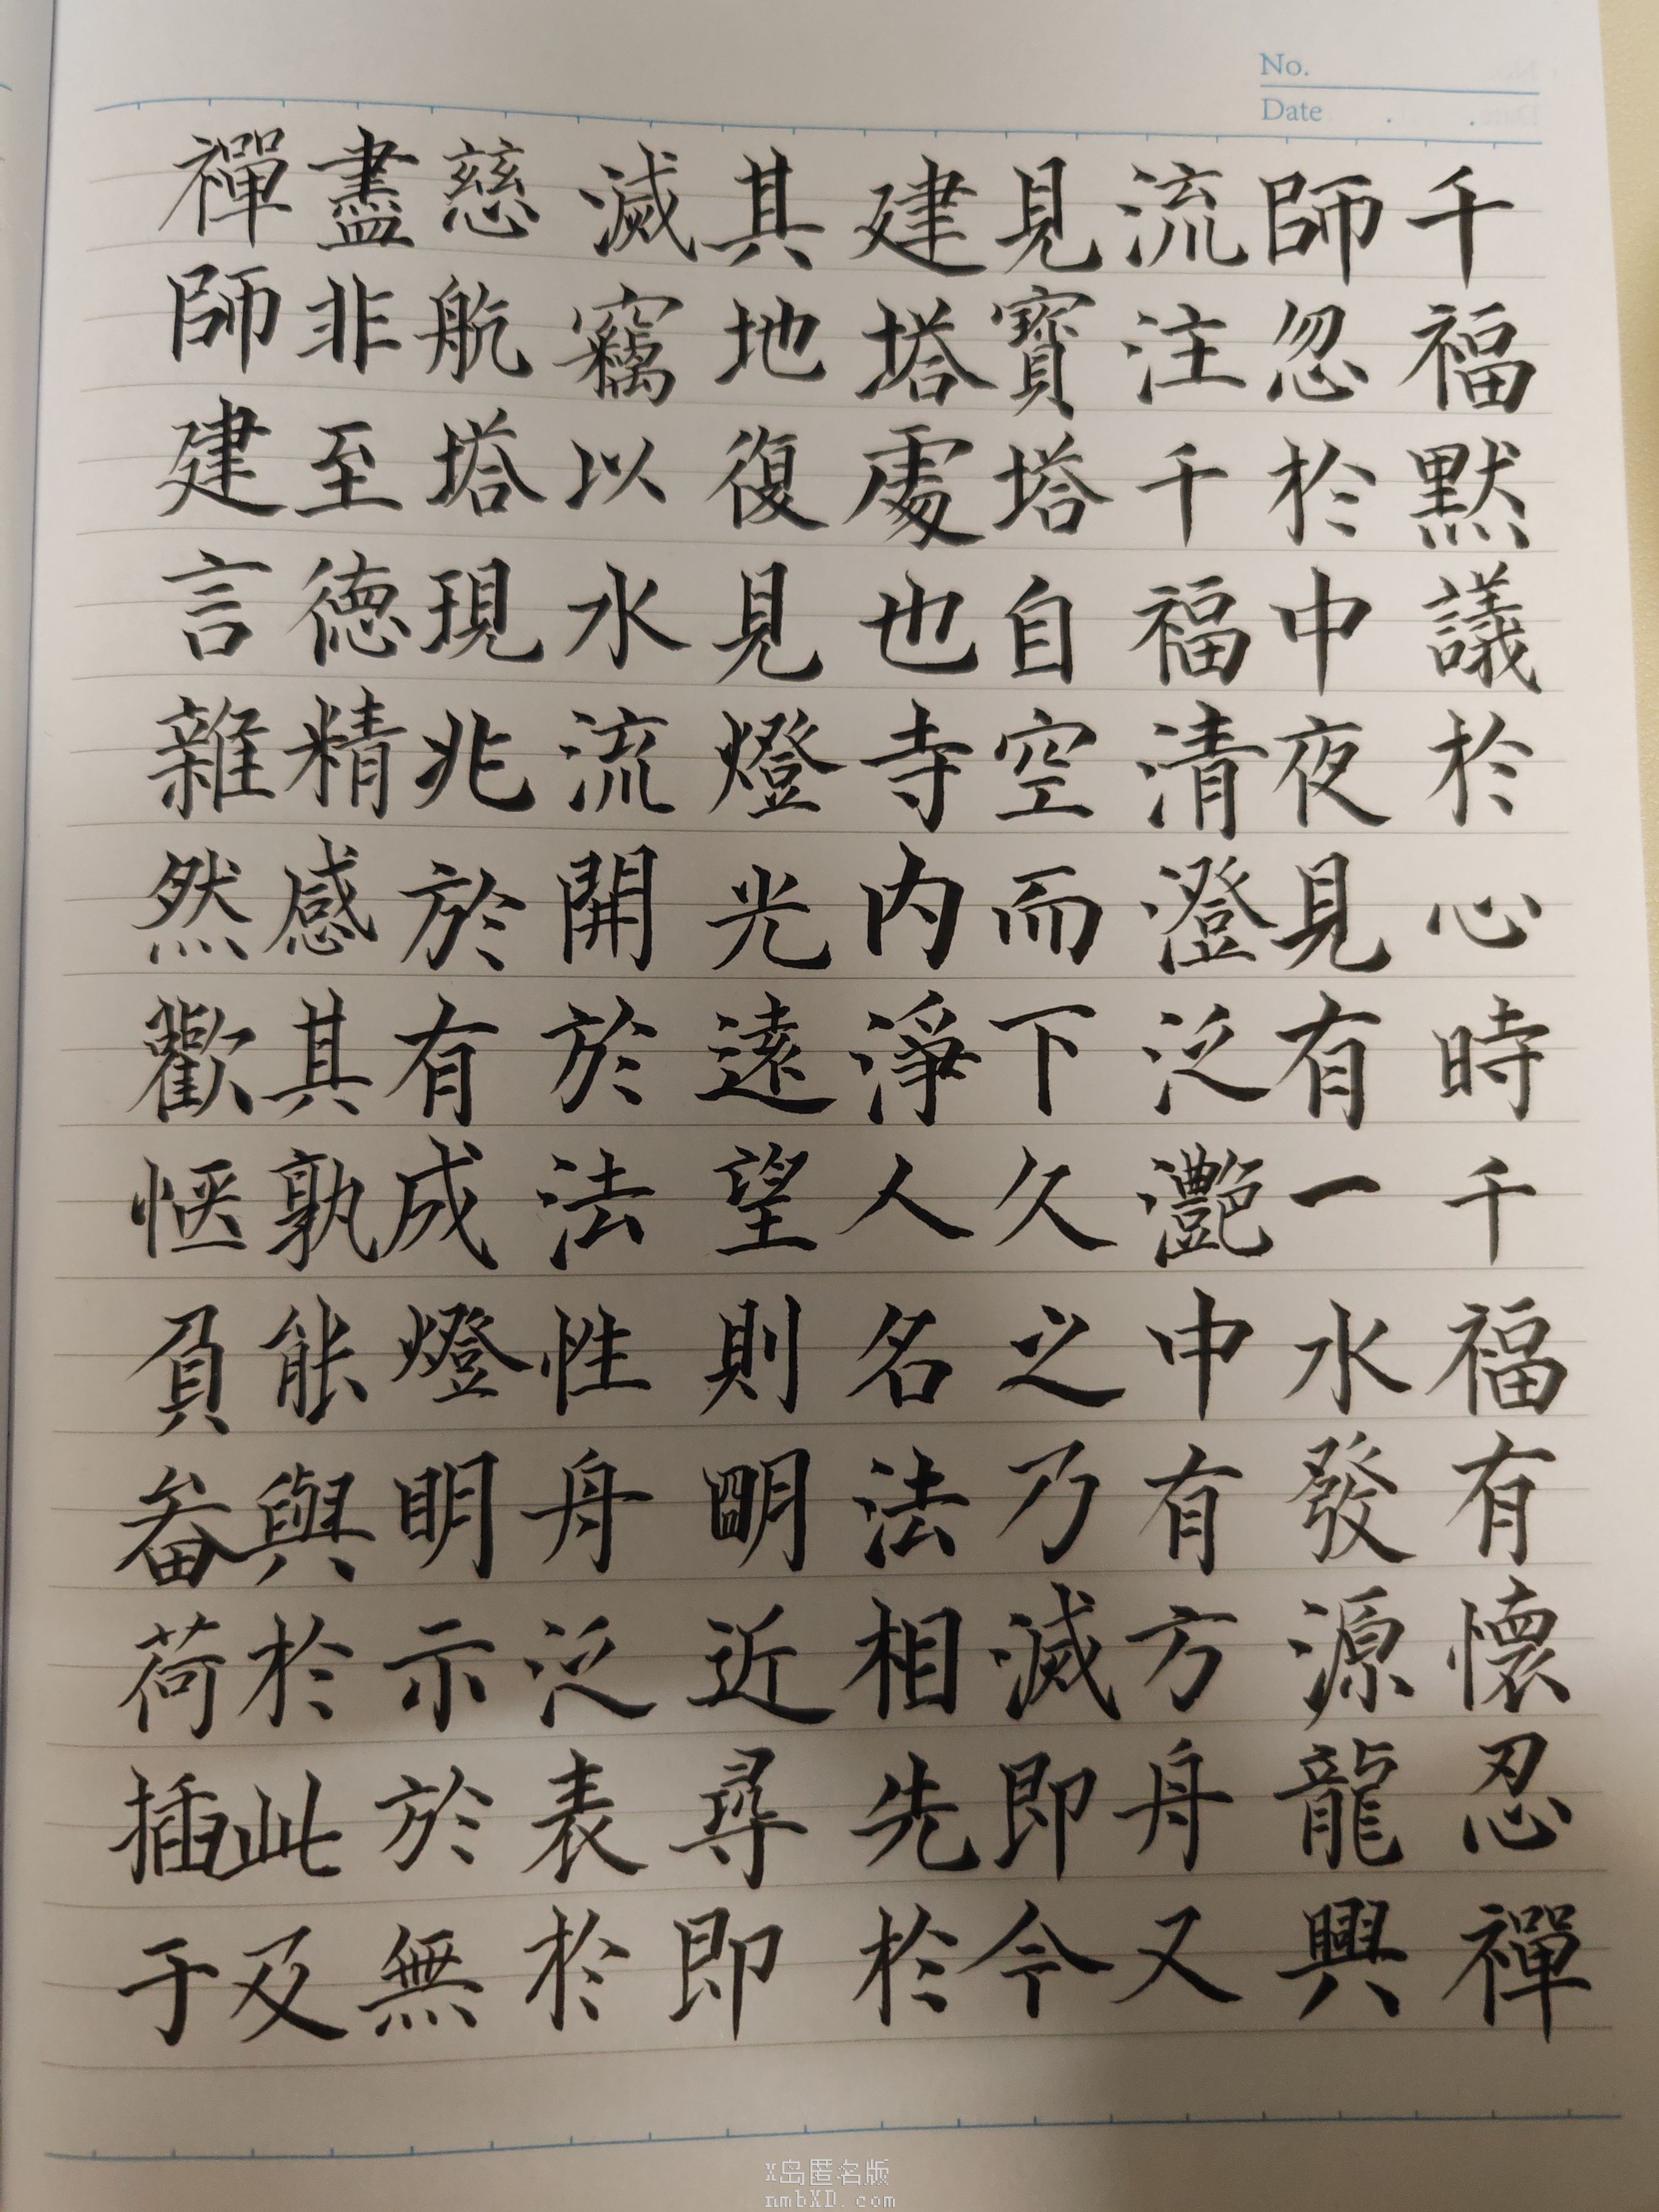 千福默議於心時千福有懷忍禪
師忽於中夜見有一水發源龍興
流注千福清澄泛灧中有方舟又
見寶塔自空而下久之乃滅即今
建塔處也寺内淨人名法相先於
其地復見燈光遠望則明近尋即
滅竊以水流開於法性舟泛表於
慈航塔現兆於有成燈明示於無
盡非至德精感其孰能與於此及
禪師建言雜然歡愜負畚荷插于
No.
Date
X岛匿名版
nmbXD.com